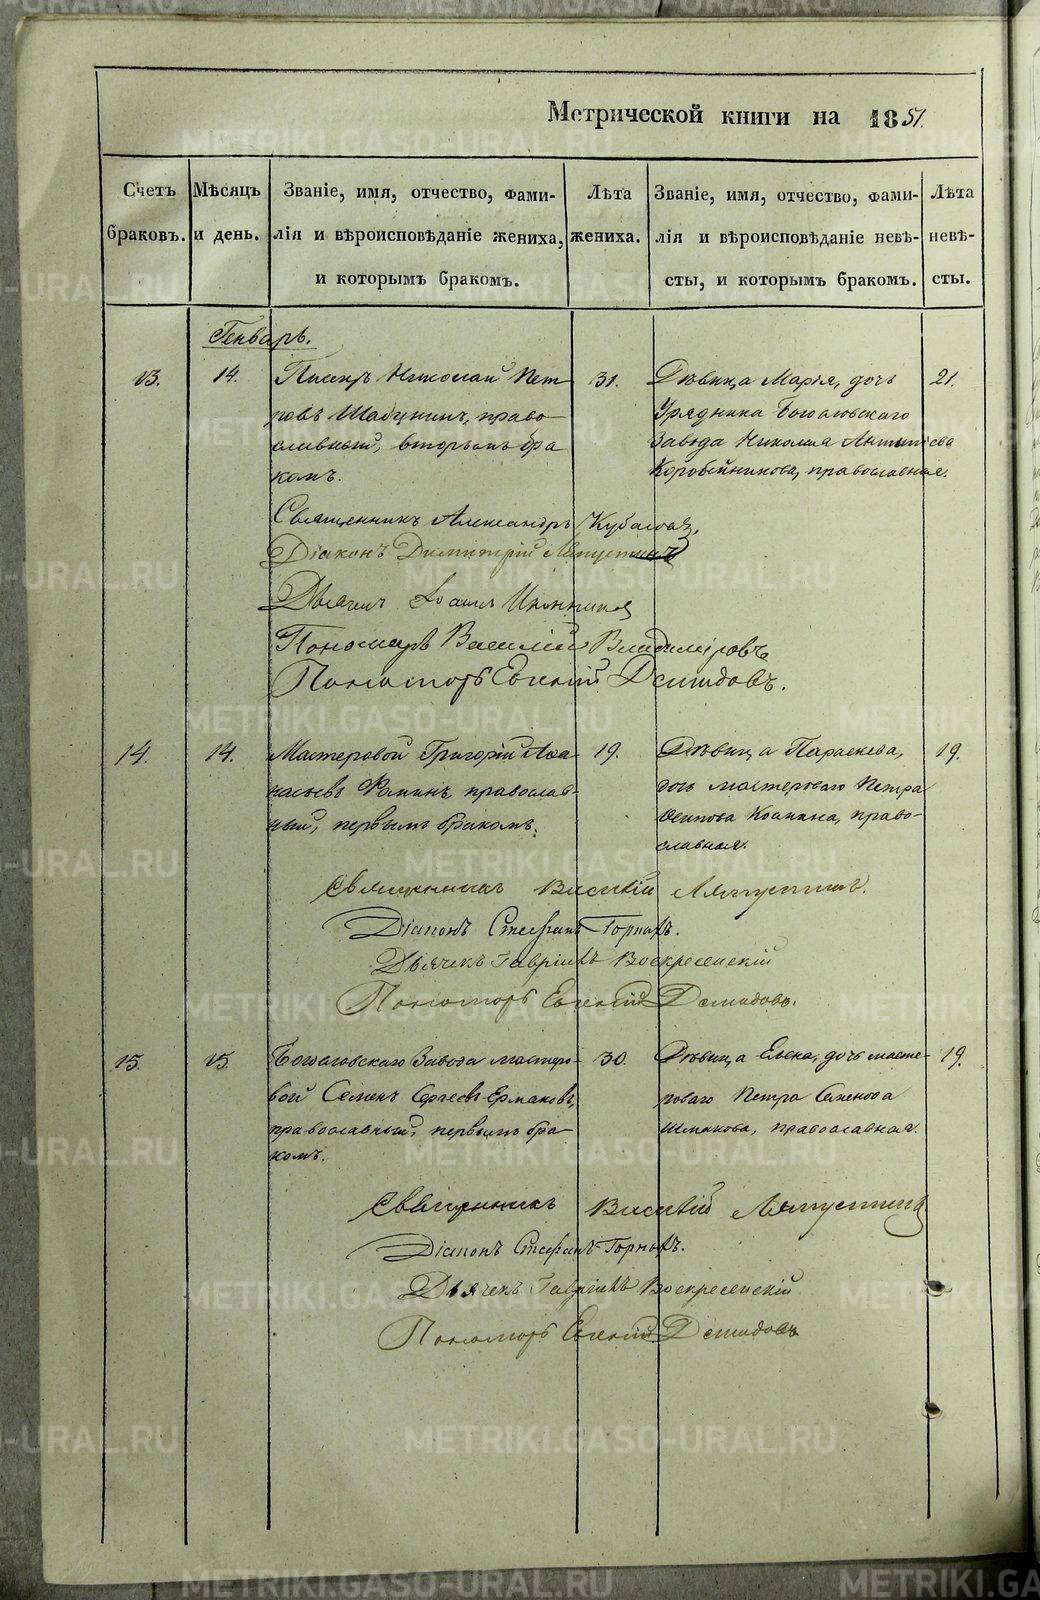 Метрической книги на 1851.
Счетъ браковъ.
Мѣсяцъ и день.
Званіе, имя, отчество, фами-
лія и вѣроисповѣданіе жениха,
и которымъ бракомъ.
Лѣта
жениха.
Званіе, имя, отчество, фами-
лія и вѣроисповѣданіе невѣ-
сты, и которымъ бракомъ.
Лѣта
невѣ-
сты.
Генварь.
13.
14.
Писецъ Николай Пет
ровъ Шабунинъ, право
славный, вторымъ бра
комъ.
31.
Дѣвица Марія, дочь
Урядника Богословскаго
завода Николая Антипіева
Коробейникова, православная.
21.
Священникъ Александръ
Діаконъ Димитрій Ляпустинъ
Дьячекъ Іоаннъ Иконников
Пономарь Василій Владиміровъ
Пономарь Евгений Демидовъ.
14.
14.
Мастеровой Григорій Аѳа
насьевъ Фоминъ, православ
ный, первымъ бракомъ.
19.
Дѣвица Параскева,
дочь мастероваго Петра
Осипова православная.
19.
Священникъ Василій Ляпустинъ.
Діаконъ Стефанъ Горныхъ.
Дьячекъ Гавріилъ Воскресенскій
Пономарь Евгений Демидовъ.
15.
15.
Богословскаго Завода мастеро
вой Семенъ Сергеевъ Ермаковъ,
православный, первымъ бра
комъ.
30.
Дѣвица Елена, дочь масте-
роваго Петра Семенова
православная.
19.
Священникъ Василій Ляпустинъ
Діаконъ Стефанъ Горныхъ.
Дьячекъ Гавріилъ Воскресенскій
Пономарь Евгений Демидовъ
METRIKI.GASO-URAL.RU